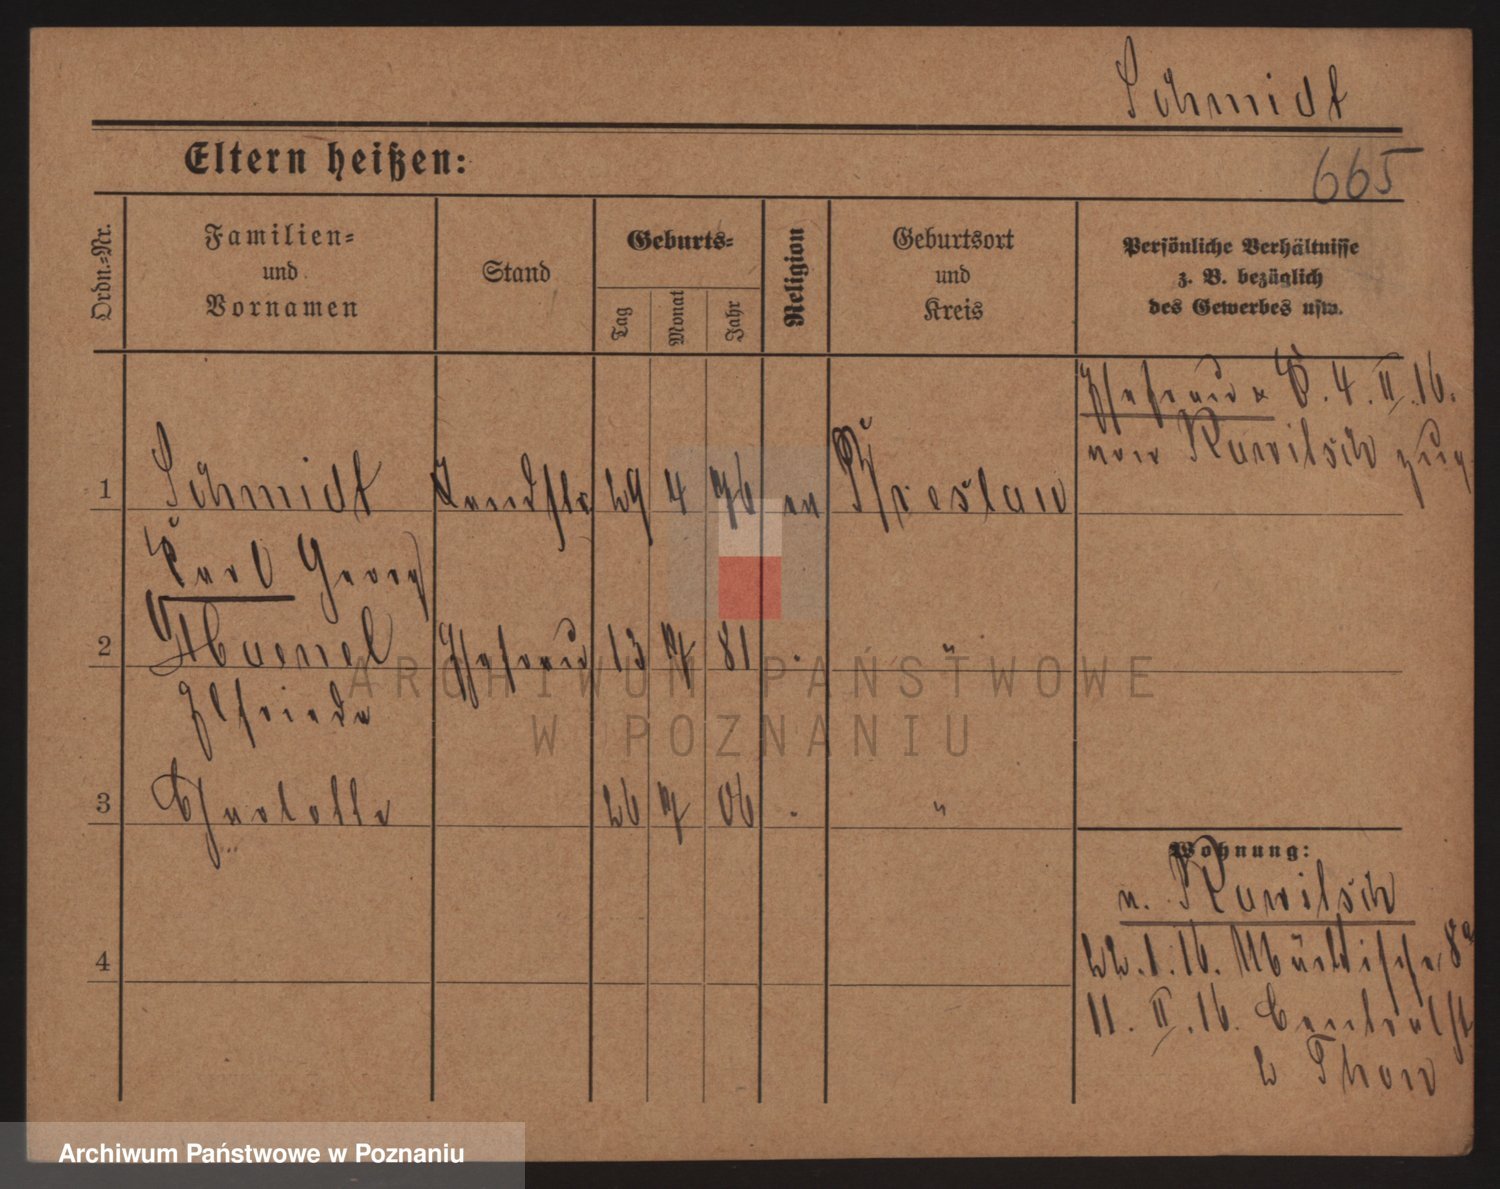 Schmidt
Eltern heißen:
665
Ordn.-Nr.
Familien-
und
Vornamen
Stand
Geburts-
Tag
Monat
Jahr
Religion
Geburtsort
und
Kreis
Persönliche Verhältnisse
z. B. bezüglich
des Gewerbes usw.
Ehefrau 4. II. 16.
von Rawitsch zug
1 Schmidt 29 4 76 ev Breslau
Carl Georg
2 Haenel Ehefrau 13 7 81 . "
Elfriede
3 Charlotte 26 7 06 . "
Wohnung:
n. Rawitsch
22. 1. 16. Märkische 8a
11. II. 16. Centralht
Thorn
4
ARCHIWUM PAŃSTWOWE
W POZNANIU
Archiwum Państwowe w Poznaniu